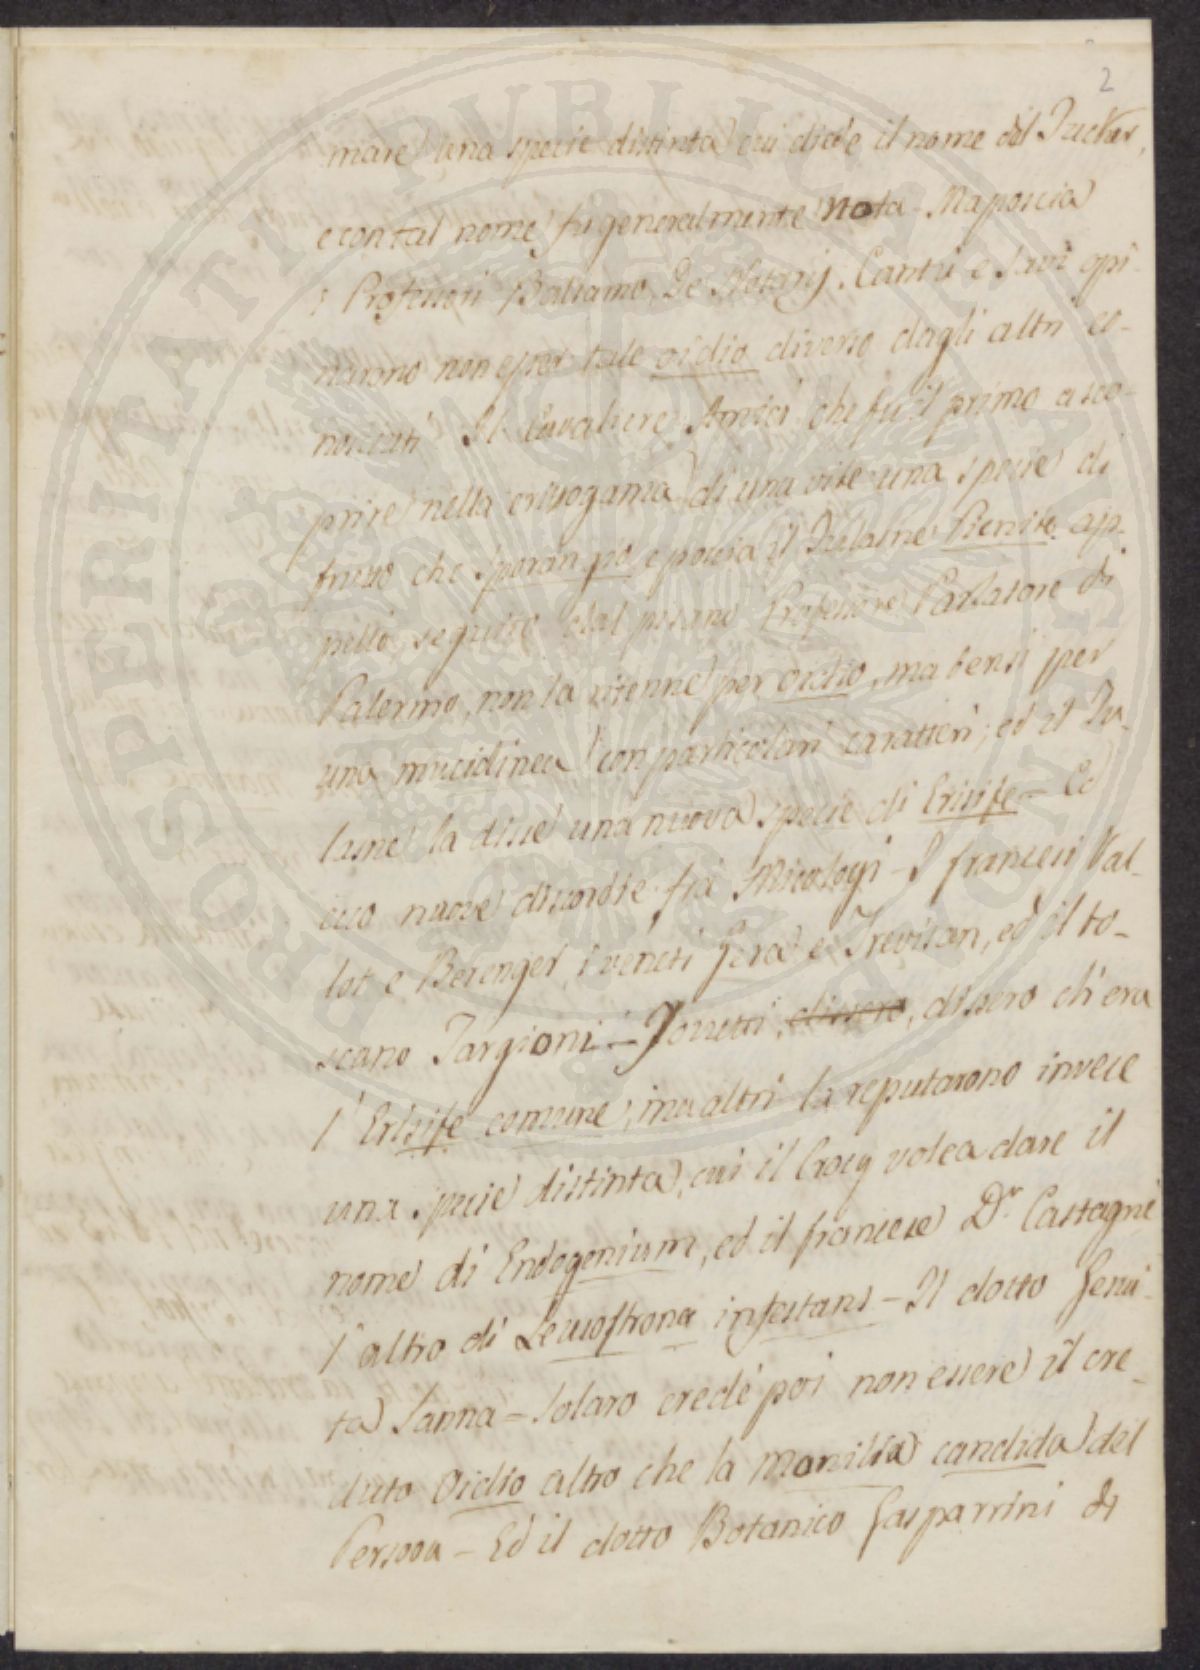 2
mare una specie distinta cui diede il nome del Tucker,
e con tal nome fu generalmente nota. Maposcia
i Professori Balsamo, De Notarij, Cantù e Savi opi-
narono non esser tale oidio diverso dagli altri co-
nosciuti. Il Cavaliere Amici che fu il primo a sco-
prire nella crittogamia di una vite una specie di
frutto che e poscia il Tulasne Picnite ap-
pellò, seguito dal pisano Professore Parlatore di
Palermo, non la ritenne per oidio, ma bensì per
una mucidinea con particolari caratteri; ed il Tu-
lasne la disse una nuova specie di Erisife – Ed
ecco nuove discordie fra Micologi – I francesi Val-
lot e Berenger, i veneti Gera e Trevisan, ed il to-
scano Targioni – Tozzetti, dissero, dissero ch'era
l'Erisife comune; ma altri la reputarono invece
una specie distinta, cui il Crocq volea dare il
nome di Endogenium, ed il francese Dr. Castagne
l'altro di Leucostroma infestans – Il dotto Gesui-
ta Sanna – Solaro credé poi non essere il cre-
duto Oidio altro che la Monilia candida del
Persoon – Ed il dotto Botanico Gasparrini di